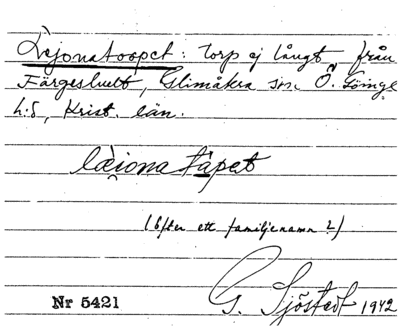 Lejonatorpet: Torp ej långt från
Färgeshult, Glimåkra sn. Ö. Göinge
h:d, Krist. län.
læiona tåpat
(Efter ett familjenamn ?)
G. Sjöstedt 1942
Nr 5421